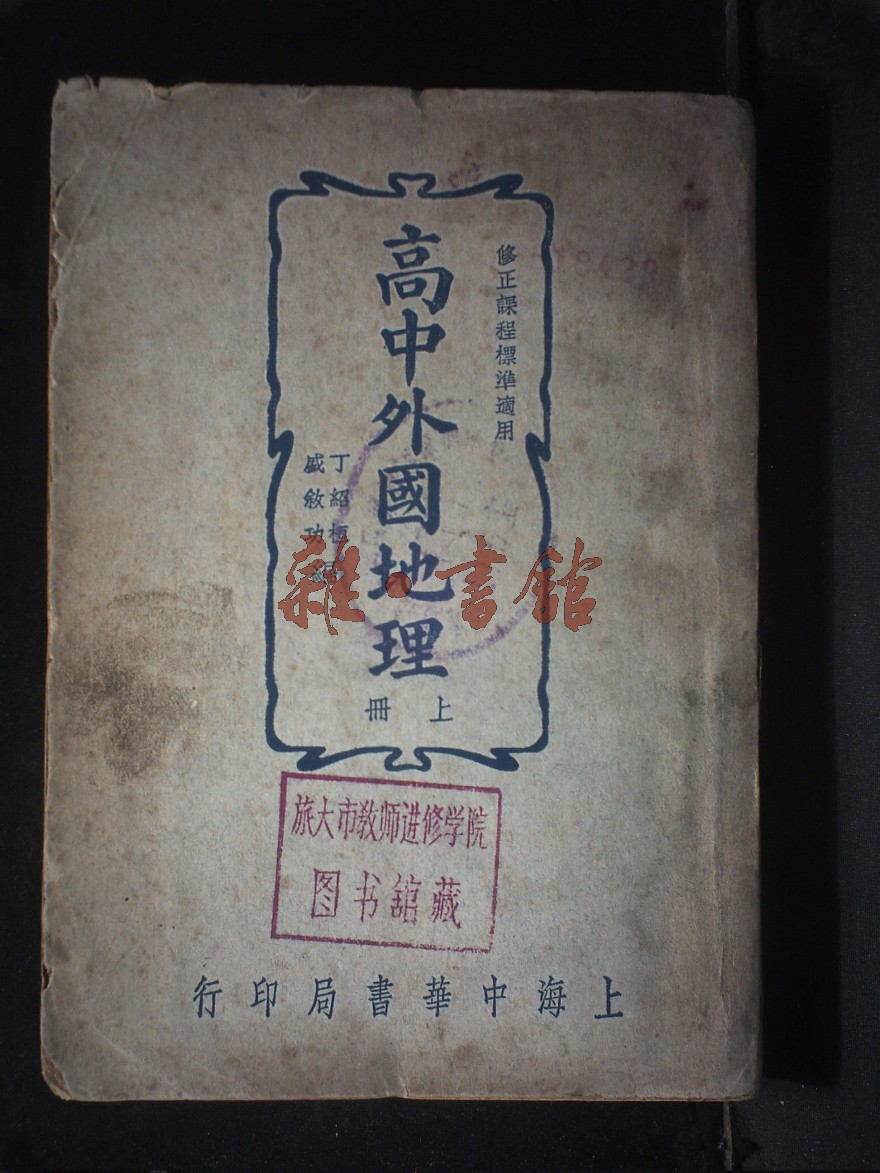 修正課程標準適用
高中外國地理
上冊
丁紹
盛敘功
雜·書館
旅大市教师进修学院
图书舘藏
上海中華書局印行